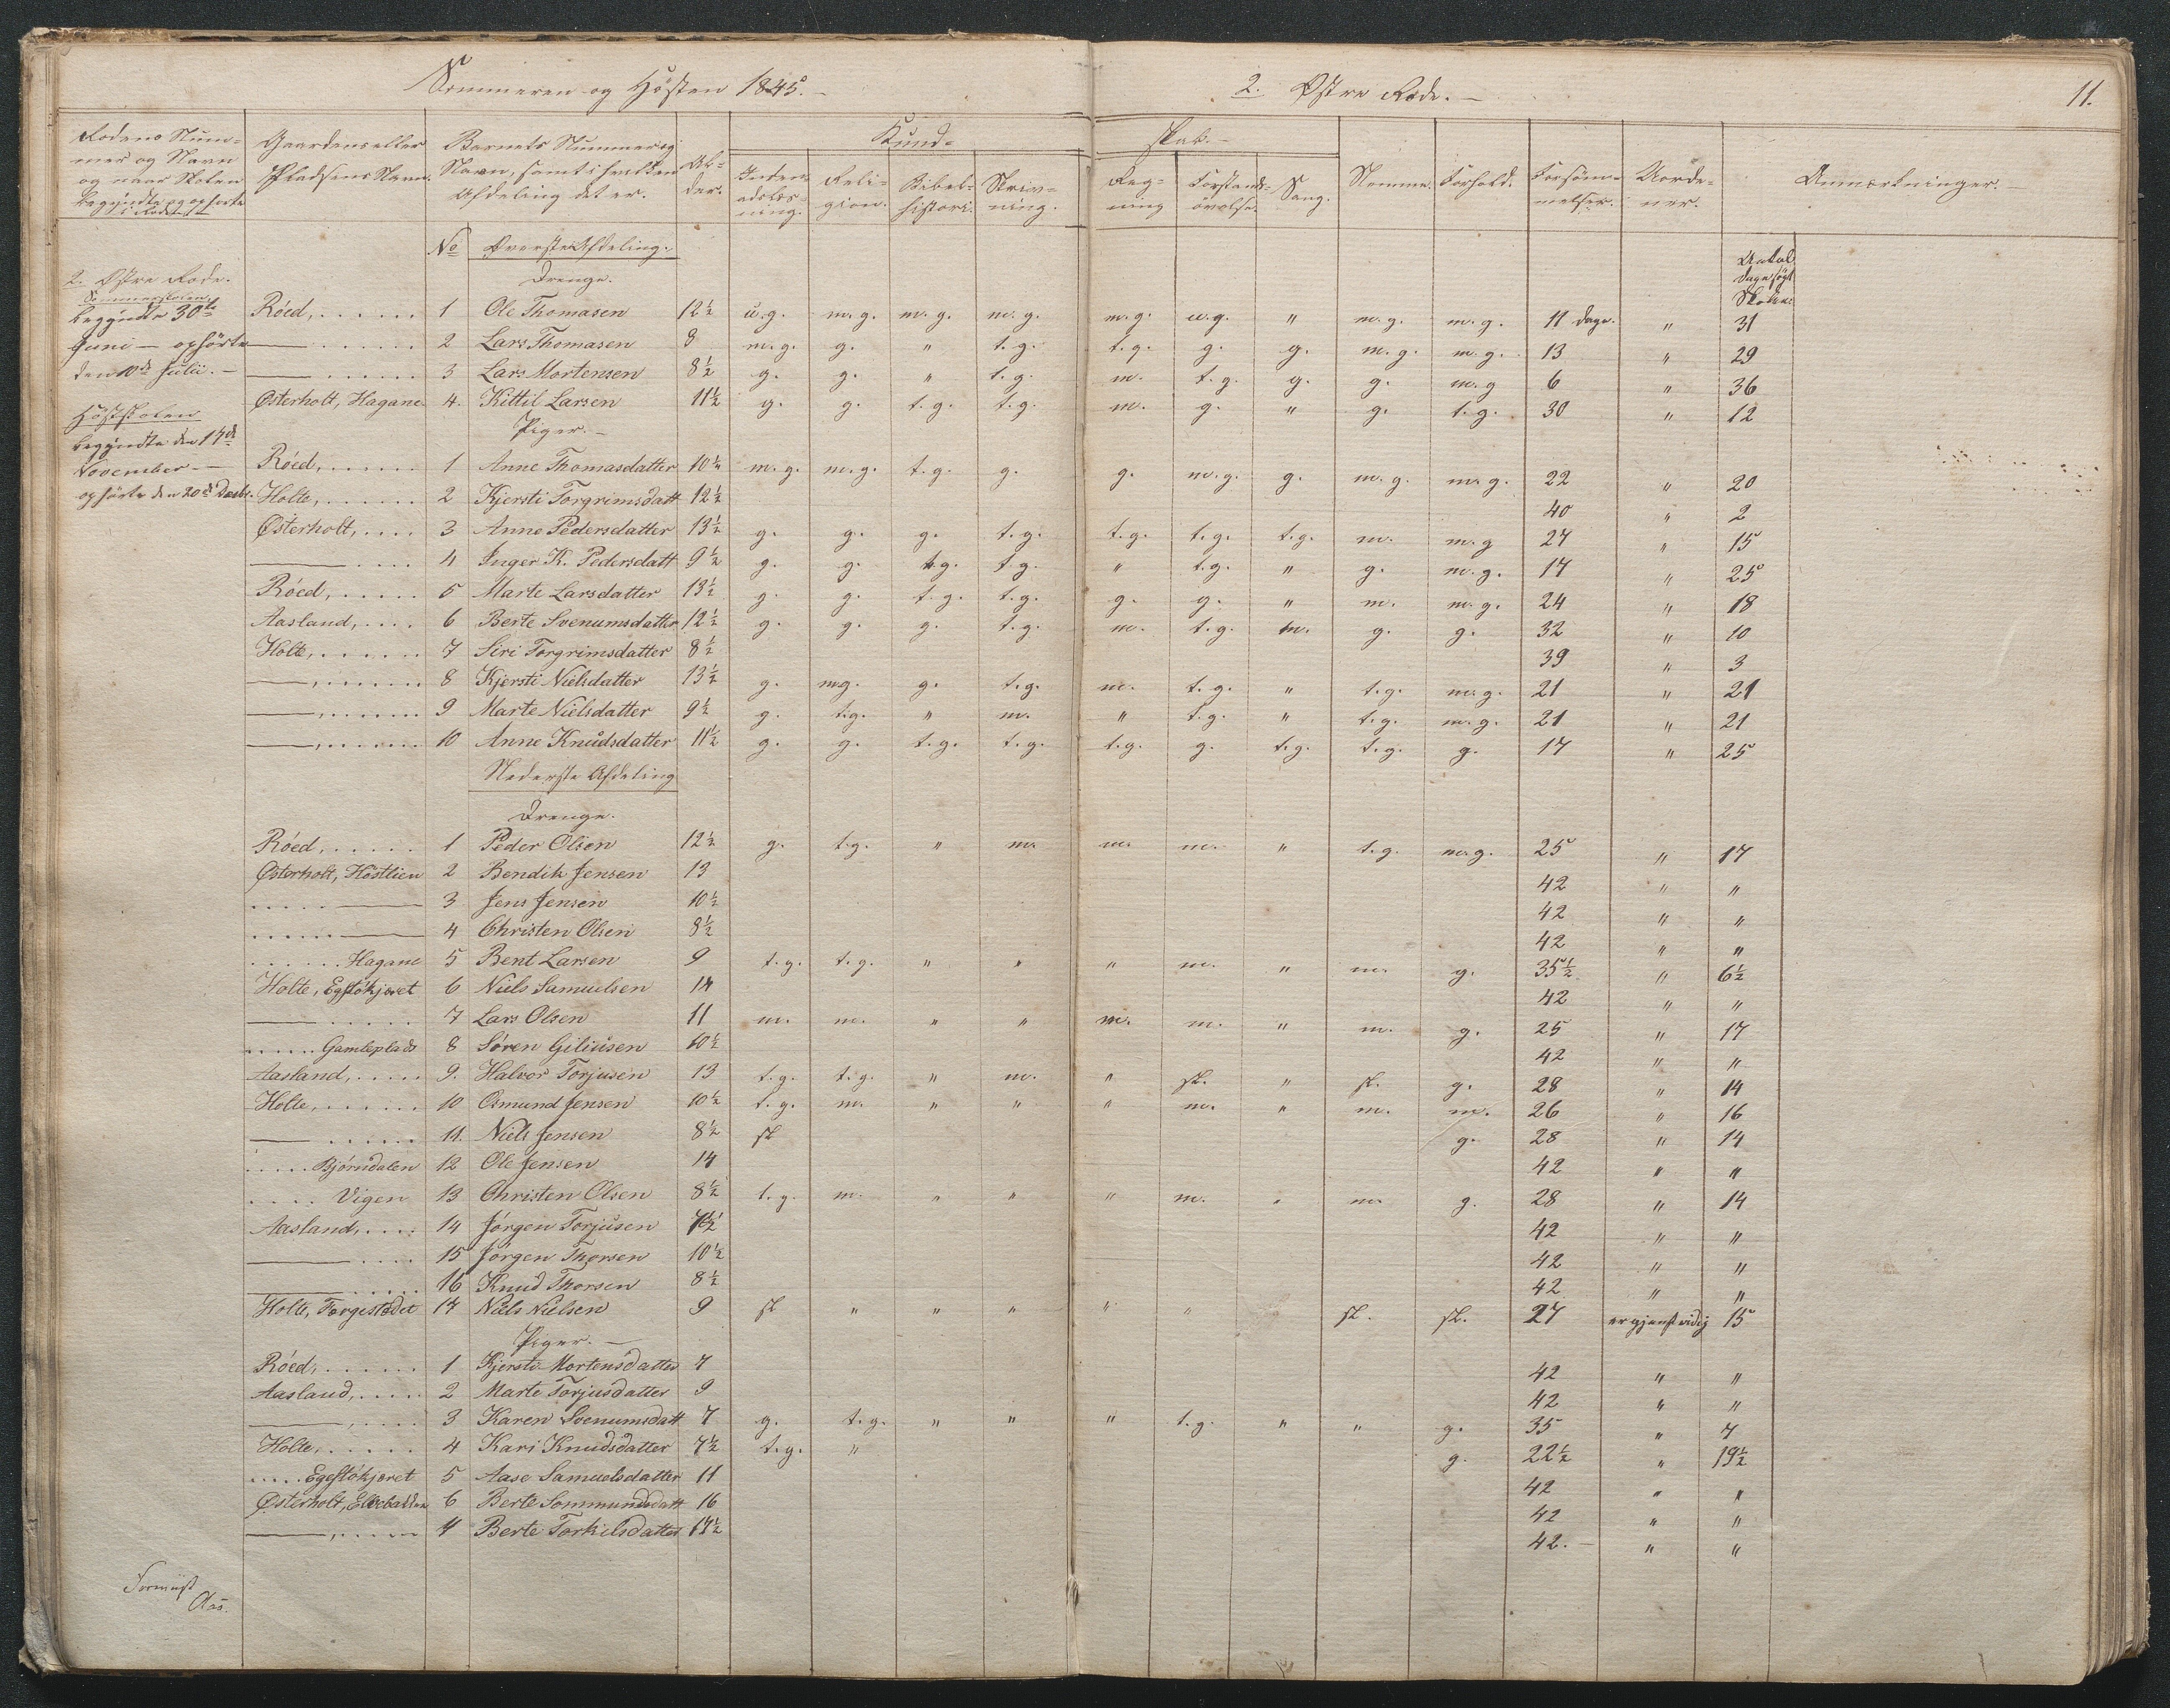 Sommeren og Hösten 1845. –
2. Östre Rode. –
11.
Rodens Num-
mer og Navn
og naar Skolen
begyndte og ophørte
i Rodet
Gaardens eller
Pladsens Navn.
Barnets Nummer og
Navn, samt i hvilken
Afdeling det er.
Al-
der.
Kund-
skab. –
Inden-
adslæs-
ning.
Reli-
gion.
Bibel-
histori.
Skriv-
ning.
Reg-
ning
Forstands-
övelse.
Sang.
Nemme.
Forhold.
Forsöm-
melser.
Uorde-
ner.
Anmærkninger. –
No Øverste Afdeling.
Antal
Dage søgt
Skolen.
2. Östre Rode.
Sommerskolen
begyndte 30te
Juni – ophörte
den 10de Julii. –
Höstskolen
begyndte den 17de
November –
ophörte den 20de Decbr.
Drenge.
Röed, . . . . . . 1 Ole Thomasen 12½ u.g. m.g. m.g. m.g. m.g. u.g. " m.g. m.g. 11 Dage. " 31
—— . . . . . . 2 Lars Thomasen 8 m.g. g. " t.g. t.g. g. g. m.g. m.g. 13 " 29
—— . . . . . . 3 Lars Mortensen 8½ g. g. " t.g. m. t.g. g. g. m.g 6 " 36
Østerholt, Hagane. 4. Kittil Larsen 11½ g. g. t.g. t.g. m. g. " g. t.g. 30 " 12
Piger. –
Röed, . . . . . . 1 Anne Thomasdatter 10¼ m.g. m.g. t.g. g. g. m.g. g. m.g. m.g. 22 " 20
Holte, . . . . . . 2 Kjersti Torgrimsdatt 12½ 40 " 2
Østerholt, . . . . 3 Anne Pedersdatter 13½ g. g. g. t.g. t.g. t.g. t.g. m. m.g 27 " 15
—— . . . . 4 Inger K. Pedersdatt 9½ g. g. t.g. t.g. " t.g. " g. m.g. 17 " 25
Röed, . . . . . . 5 Marte Larsdatter 13½ g. g. t.g. t.g. g. g. " m. m.g. 24 " 18
Aasland, . . . . 6 Berte Svenumsdatter 12½ g. g. g. t.g. m. t.g. m. g. g. 32 " 10
Holte, . . . . . . 7 Siri Torgrimsdatter 8½ 39 " 3
——, . . . . . . 8 Kjersti Nielsdatter 13½ g. mg. g. t.g. m. t.g. " t.g. m.g. 21 " 21
——, . . . . . . 9 Marte Nielsdatter 9½ g. t.g. " m. " t.g. " t.g. m.g. 21 " 21
——, . . . . . . 10 Anne Knudsdatter 11½ g. g. t.g. t.g. t.g. g. t.g. t.g. g. 17 " 25
Nederste Afdeling
Drenge.
Röed, . . . . . 1 Peder Olsen 12½ g. t.g. " m. m. m. " t.g. m.g. 25 " 17
Østerholt, Höstlien 2 Bendik Jensen 13 42 " "
. . . . . —— 3 Jens Jensen 10½ 42 " "
. . . . . —— 4 Christen Olsen 8½ 42 " "
. . . . . Hagane 5 Bent Larsen 9 t.g. t.g. " " " m. " m. g. 35½ " 6½
Holte, Egstökjæret 6 Niels Samuelsen 14 42 " "
—— . . . . . 7 Lars Olsen 11 m. m. " " m. m. " m. g. 25 " 17
. . . . . Gamleplads 8 Sören Giliusen 10½ 42 " "
Aasland, . . . . . 9. Halvor Torjusen 13 t.g. t.g. " m. " sl. " sl. g. 28 " 14
Holte, . . . . . . 10 Osmund Jensen 10½ t.g. m. " " " m. " m. m. 26 " 16
—— . . . . . . 11. Niels Jensen 8½ sl g. 28 " 14
. . . . . Björndalen 12 Ole Jensen 14 42 " "
. . . . Vigen 13 Christen Olsen 8½ t.g. m. " " " m. " m. g. 28 " 14
Aasland, . . . . 14 Jörgen Torjusen 42 " "
—— . . . . 15 Jörgen Thorsen 10½ 42 " "
—— . . . . . 16 Knud Thorsen 8½ 42 " "
Holte, Torgestedet 17 Niels Nielsen 9 sl " " " " " sl. sl. 27 er gjenstridig 15
Piger. –
Röed, . . . . . . 1 Kjersti Mortensdatter 7 42 " "
Aasland, . . . . . 2 Marte Torjusdatter 9 42 " "
——, . . . . 3 Karen Svenumsdatt 7 g. t.g. " " " t.g. " " g. 35 " 7
Holte, . . . . . 4 Kari Knudsdatter 7½ t.g. " g. 22½ " 19½
. . . . . Egestökjæret 5 Aase Samuelsdatter 11 42 " "
Østerholt, 6 Berte Sommundsdatt 16 42 " "
——, . . . . . 7 Berte Torkilsdatter 42. – " "
Aas.